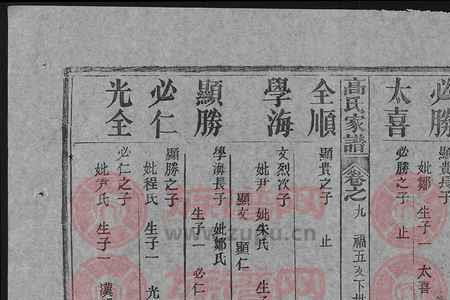 必勝
顯貴長子
妣鄒 生子一 太喜
太喜
必勝之子 止
高氏家譜 卷之九 福五亥下
全順
顯貴之子 止
學海
文烈次子
妣尹 妣朱氏 生子
顯文 顯仁
顯勝
學海長子 妣鄒氏
生子一 必仁
必仁
顯勝之子
妣程氏 生子一 光
光全
必仁之子
妣尹氏 生子一 漢
www.zupu.cn